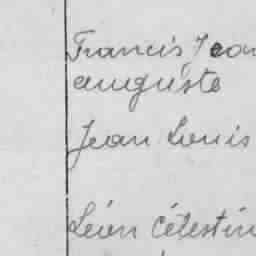 Francis, Jean
auguste
Jean Louis
Léon Célestin